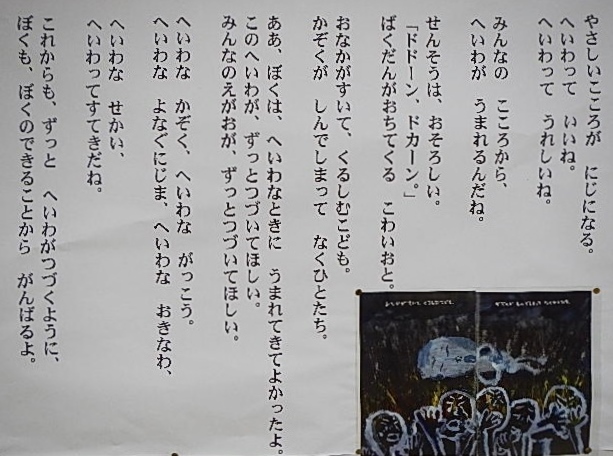 やさしいこころが　にじになる。
へいわって　いいね。
へいわって　うれしいね。
みんなの　こころから、
へいわが　うまれるんだね。
せんそうは、おそろしい。
「ドドーン、ドカーン。」
ばくだんがおちてくる　こわいおと。
おなかがすいて、くるしむこども。
かぞくが　しんでしまって　なくひとたち。
ああ、ぼくは、へいわなときに　うまれてきてよかったよ。
このへいわが、ずっとつづいてほしい。
みんなのえがおが、ずっとつづいてほしい。
へいわな　かぞく、へいわな　がっこう。
へいわな　よなぐにじま、へいわな　おきなわ、
へいわな　せかい、
へいわってすてきだね。
これからも、ずっと　へいわがつづくように、
ぼくも、ぼくのできることから　がんばるよ。